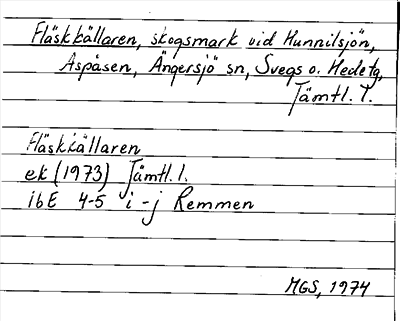 Fläskkällaren, skogsmark vid Hunnilsjön,
Aspåsen, Ängersjö sn, Svegs o. Hede tg,
Jämtl. l.
Fläskkällaren
ek (1973) Jämtl. l.
16E 4-5 i-j Remmen
MGS, 1974